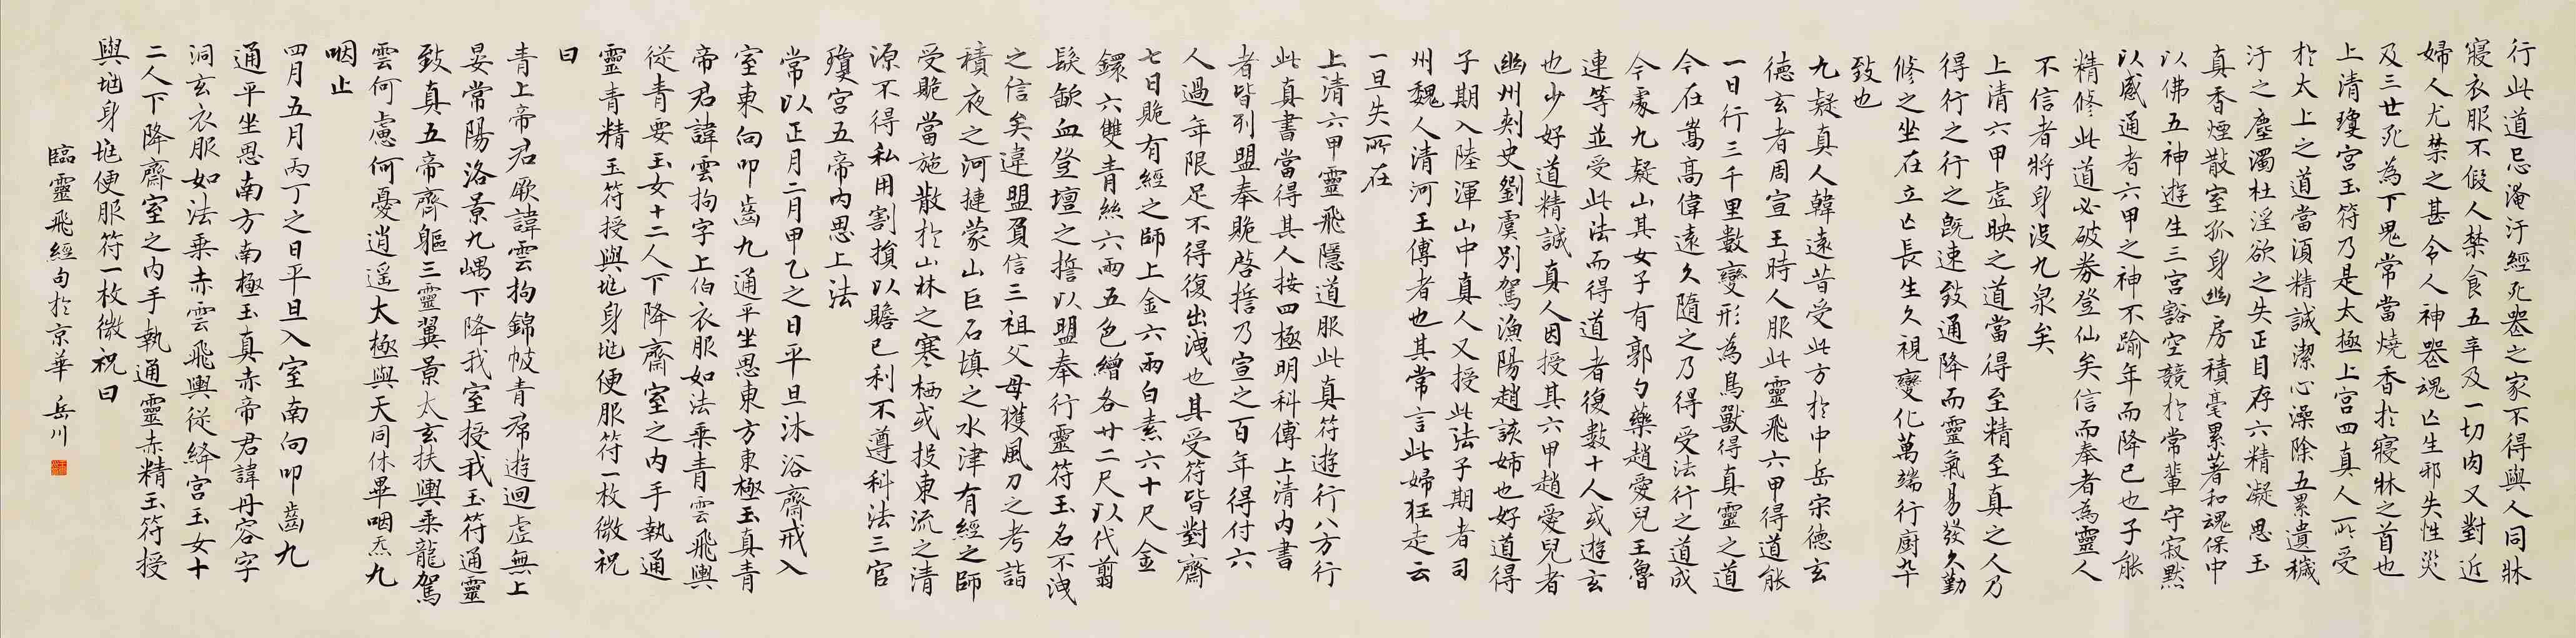 行此道忌淹汙經死喪之家不得與人同牀
寢衣服不假人禁食五辛及一切肉又對近
婦人尤禁之甚令人神喪魂亡生邪失性災
及三世死為下鬼常當燒香於寢牀之首也
上清瓊宮玉符乃是太極上宮四真人所受
於太上之道當須精誠潔心澡除五累遺穢
汙之塵濁杜淫欲之失正目存六精凝思玉
真香煙散室孤身幽房積毫累著和魂保中
以佛五神遊生三宮豁空競於常輩守寂默
以感通者六甲之神不踰年而降已也子能
精修此道必破券登仙矣信而奉者為靈人
不信者將身沒九泉矣
上清六甲虛映之道當得至精至真之人乃
得行之行之既速致通降而靈氣易發久勤
修之坐在立亡長生久視變化萬端行廚卆
致也
九疑真人韓遠昔受此方於中岳宗德玄
德玄者周宣王時人服此靈飛六甲得道能
一日行三千里數變形為鳥獸得真靈之道
今在嵩高偉遠久隨之乃得受法行之道成
今處九疑山其女子有郭勺藥趙愛兒王魯
連等並受此法而得道者復數十人或遊玄
也少好道精誠真人因授其六甲趙愛兒者
幽州刾史劉虞別駕漁陽趙該姊也好道得
子期入陸渾山中真人又授此法子期者司
州魏人清河王傅者也其常言此婦狂走云
一旦失所在
上清六甲靈飛隱道服此真符遊行八方行
此真書當得其人按四極明科傳上清內書
者皆列盟奉贶啓誓乃宣之百年得付六
人過年限足不得復出洩也其受符皆對齋
七日贶有經之師上金六兩白素六十尺金
鐶六雙青絲六兩五色繒各廿二尺以代翦
髮歃血登壇之誓以盟奉行靈符玉名不洩
之信矣違盟負信三祖父母獲風刀之考詣
積夜之河揵蒙山巨石填之水津有經之師
受贶當施散於山林之寒栖或投東流之清
源不得私用割損以贍已利不遵科法三官
瓊宮五帝內思上法
常以正月二月甲乙之日平旦沐浴齋戒入
室東向叩齒九通平坐思東方東極玉真青
帝君諱雲拘字上伯衣服如法乘青雲飛輿
從青要玉女十二人下降齋室之內手執通
靈青精玉符授與兆身兆便服符一枚微祝
曰
青上帝君厥諱雲拘錦帔青帬遊迴虛無上
晏常陽洛景九嵎下降我室授我玉符通靈
致真五帝齊軀三靈翼景太玄扶輿乘龍駕
雲何慮何憂逍遥太極與天同休畢咽炁九
咽止
四月五月丙丁之日平旦入室南向叩齒九
通平坐思南方南極玉真赤帝君諱丹容字
洞玄衣服如法乘赤雲飛輿從絳宮玉女十
二人下降齋室之內手執通靈赤精玉符授
與兆身兆便服符一枚微祝曰
臨靈飛經句於京華 岳川